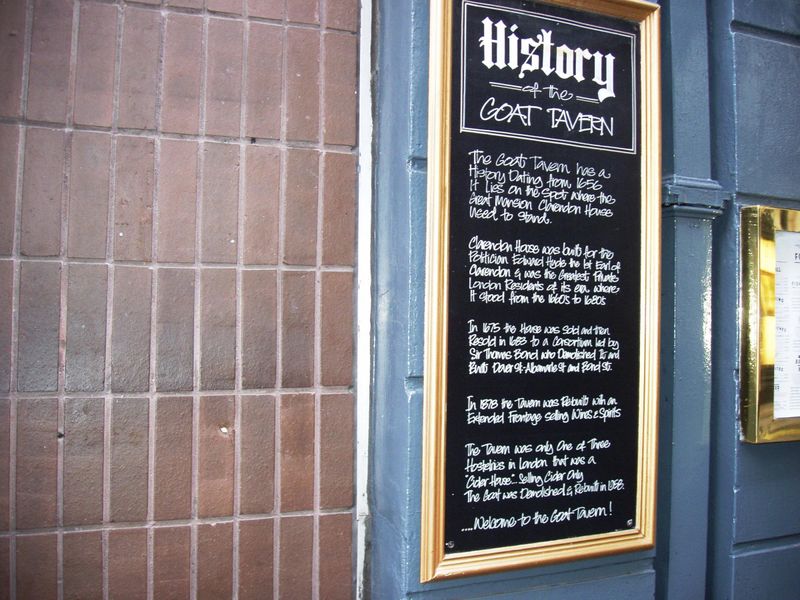 History
of the
GOAT TAVERN
The Goat Tavern has a
History Dating from 1656
It Lies on the Spot where the
Great Mansion Clarendon House
Used to Stand.
Clarendon House was built for the
Politician Edward Hyde the 1st Earl of
Clarendon & was the Greatest Private
London Residents of its era where
It stood from the 1660's to 1680's
In 1675 the House was Sold and then
Resold in 1683 to a Consortium Led by
Sir Thomas Bond who Demolished It and
Built Dover St. Albamarle St and Bond St.
In 1878 the Tavern was Rebuilt with an
Extended Frontage Selling Wines & Spirits
The Tavern was only One of Three
Hostelries in London that was a
"Cider House"... Selling Cider Only
The Goat was Demolished & Rebuilt in 1958.
....Welcome to the Goat Tavern!